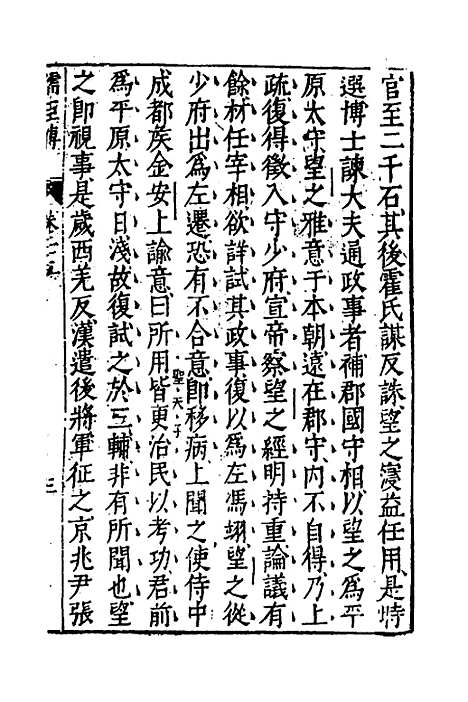 官至二千石其後霍氏謀反誅望之寖益任用是時
選博士諫大夫通政事者補郡國守相以望之為平
原太守望之雅意于本朝遠在郡守内不自得乃上
疏復得徵入守少府宣帝察望之經明持重論議有
餘材任宰相欲詳試其政事復以為左馮翊望之從
少府出為左遷恐有不合意即移病上聞之使侍中
成都矦金安上諭意曰所用皆更治民以考功君前
聖天子
為平原太守日淺故復試之於三輔非有所聞也望
之即視事是歲西羌反漢遣後將軍征之京兆尹張
儒臣傳
三